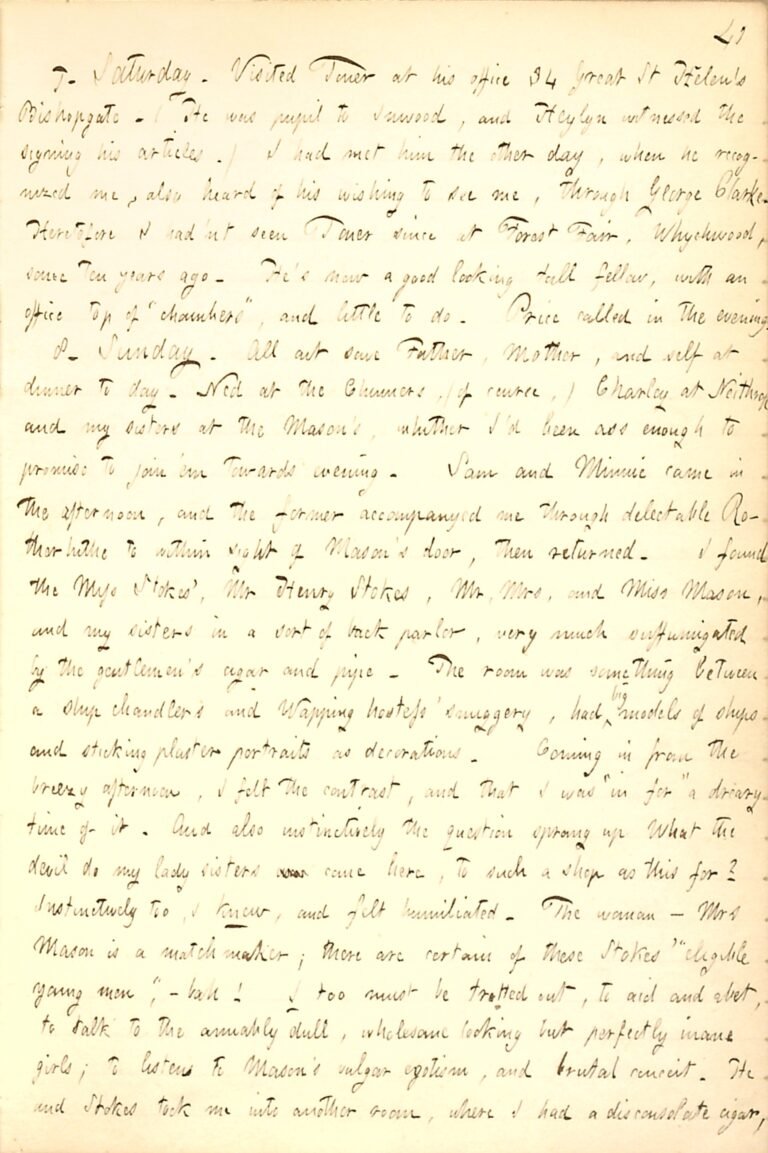 41
7. Saturday. Visited Toner at his office 34 Great St Helen's
Bishopgate. (He was pupil to Inwood, and Heylyn witnessed the
signing his articles.) I had met him the other day, when he recog-
nized me, also heard of his wishing to see me, through George Clarke.
Heretofore I had'nt seen Toner since at Forest Fair, Whychwood,
some ten years ago. He's now a good looking tall fellow, with an
office top of "chambers", and little to do. Price called in the evening.
8. Sunday. All out save Father, Mother, and self at
dinner to day. Ned at the Chinners, (of course,) Charley at Neithrop
and my sisters at the Mason's, whither I'd been ass enough to
promise to join 'em towards evening. Sam and Minnie came in
the afternoon, and the former accompanyed me through delectable Ro-
therhithe to within sight of Mason's door, then returned. I found
the Miss Stokes', Mr Henry Stokes, Mr, Mrs, and Miss Mason,
and my sisters in a sort of back parlor, very much suffumigated
by the gentlemen's cigar and pipe. The room was something between
a ship chandler's and Wapping hostess' snuggery, had big models of ships
and sticking plaster portraits as decorations. Coming in from the
breezy afternoon, I felt the contrast, and that I was "in for" a dreary
time of it. And also instinctively the question sprang up What the
devil do my lady sisters come here, to such a shop as this for?
Instinctively too, I knew, and felt humiliated. The woman — Mrs
Mason is a matchmaker; there are certain of these Stokes' "eligible
young men", – bah! I too must be trotted out, to aid and abet,
to talk to the amiably dull, wholesome looking but perfectly inane
girls; to listen to Mason's vulgar egotism, and brutal conceit. He
and Stokes took me into another room, where I had a disconsolate cigar,